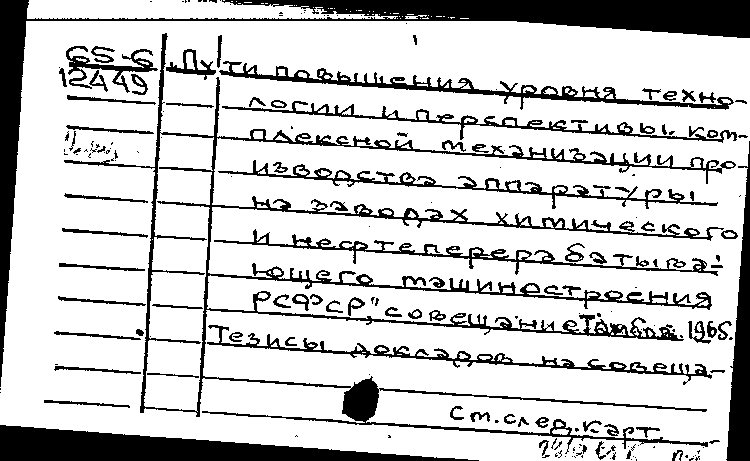 65-6
12449
„Пути повышения уровня техно-
логии и перспективы ком-
плексной механизации про-
изводства аппаратуры
на заводах химического
и нефтеперерабатыва-
ющего машиностроения
РСФСР,“ совещание Тамбов. 1965.
Тезисы докладов на совеща-
См. след. карт.